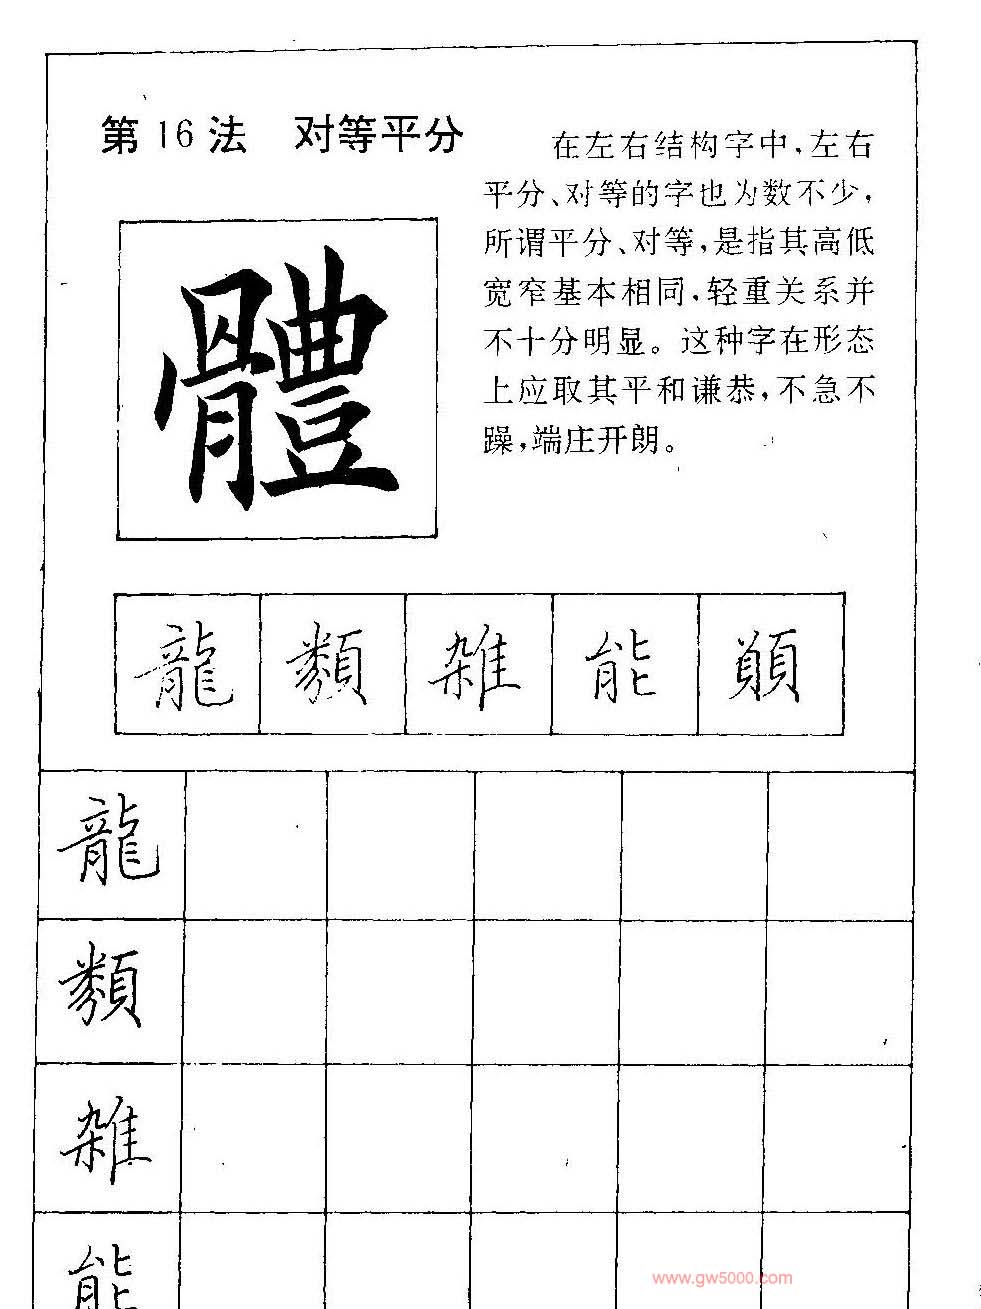 第16法 对等平分
在左右结构字中，左右
平分、对等的字也为数不少，
所谓平分、对等，是指其高低
宽窄基本相同，轻重关系并
不十分明显。这种字在形态
上应取其平和谦恭，不急不
躁，端庄开朗。
體
龍 類 雑 能 顛
龍
類
雑
能
www.gw5000.com